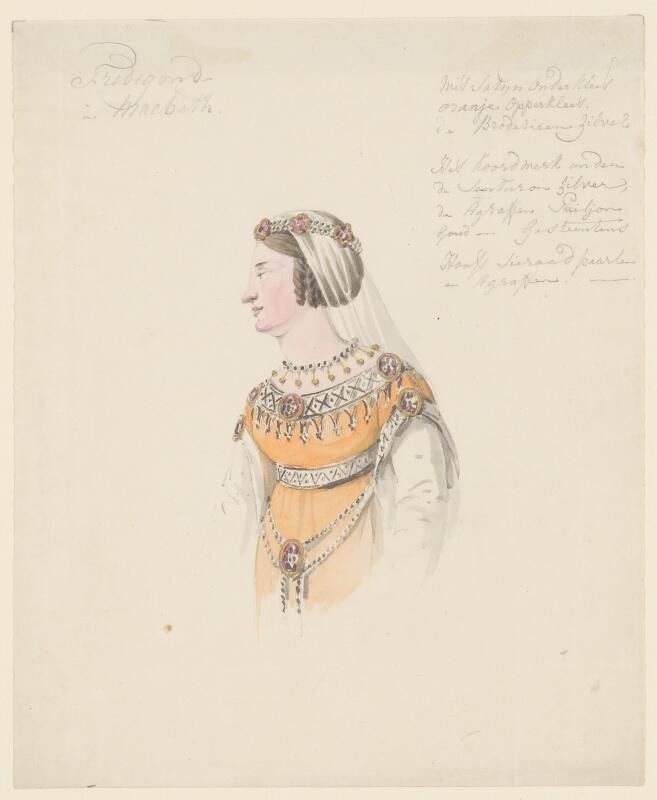 Fredegond
in Macbeth.
Wit Satijn Onderkleed
oranje Opperkleed.
de Broderieën Zilver
Het koordwerk onder
de Zilver,
de Agraffen
Goud en Gesteentens
Hoofd Sieraad paarlen
en Agraffen.